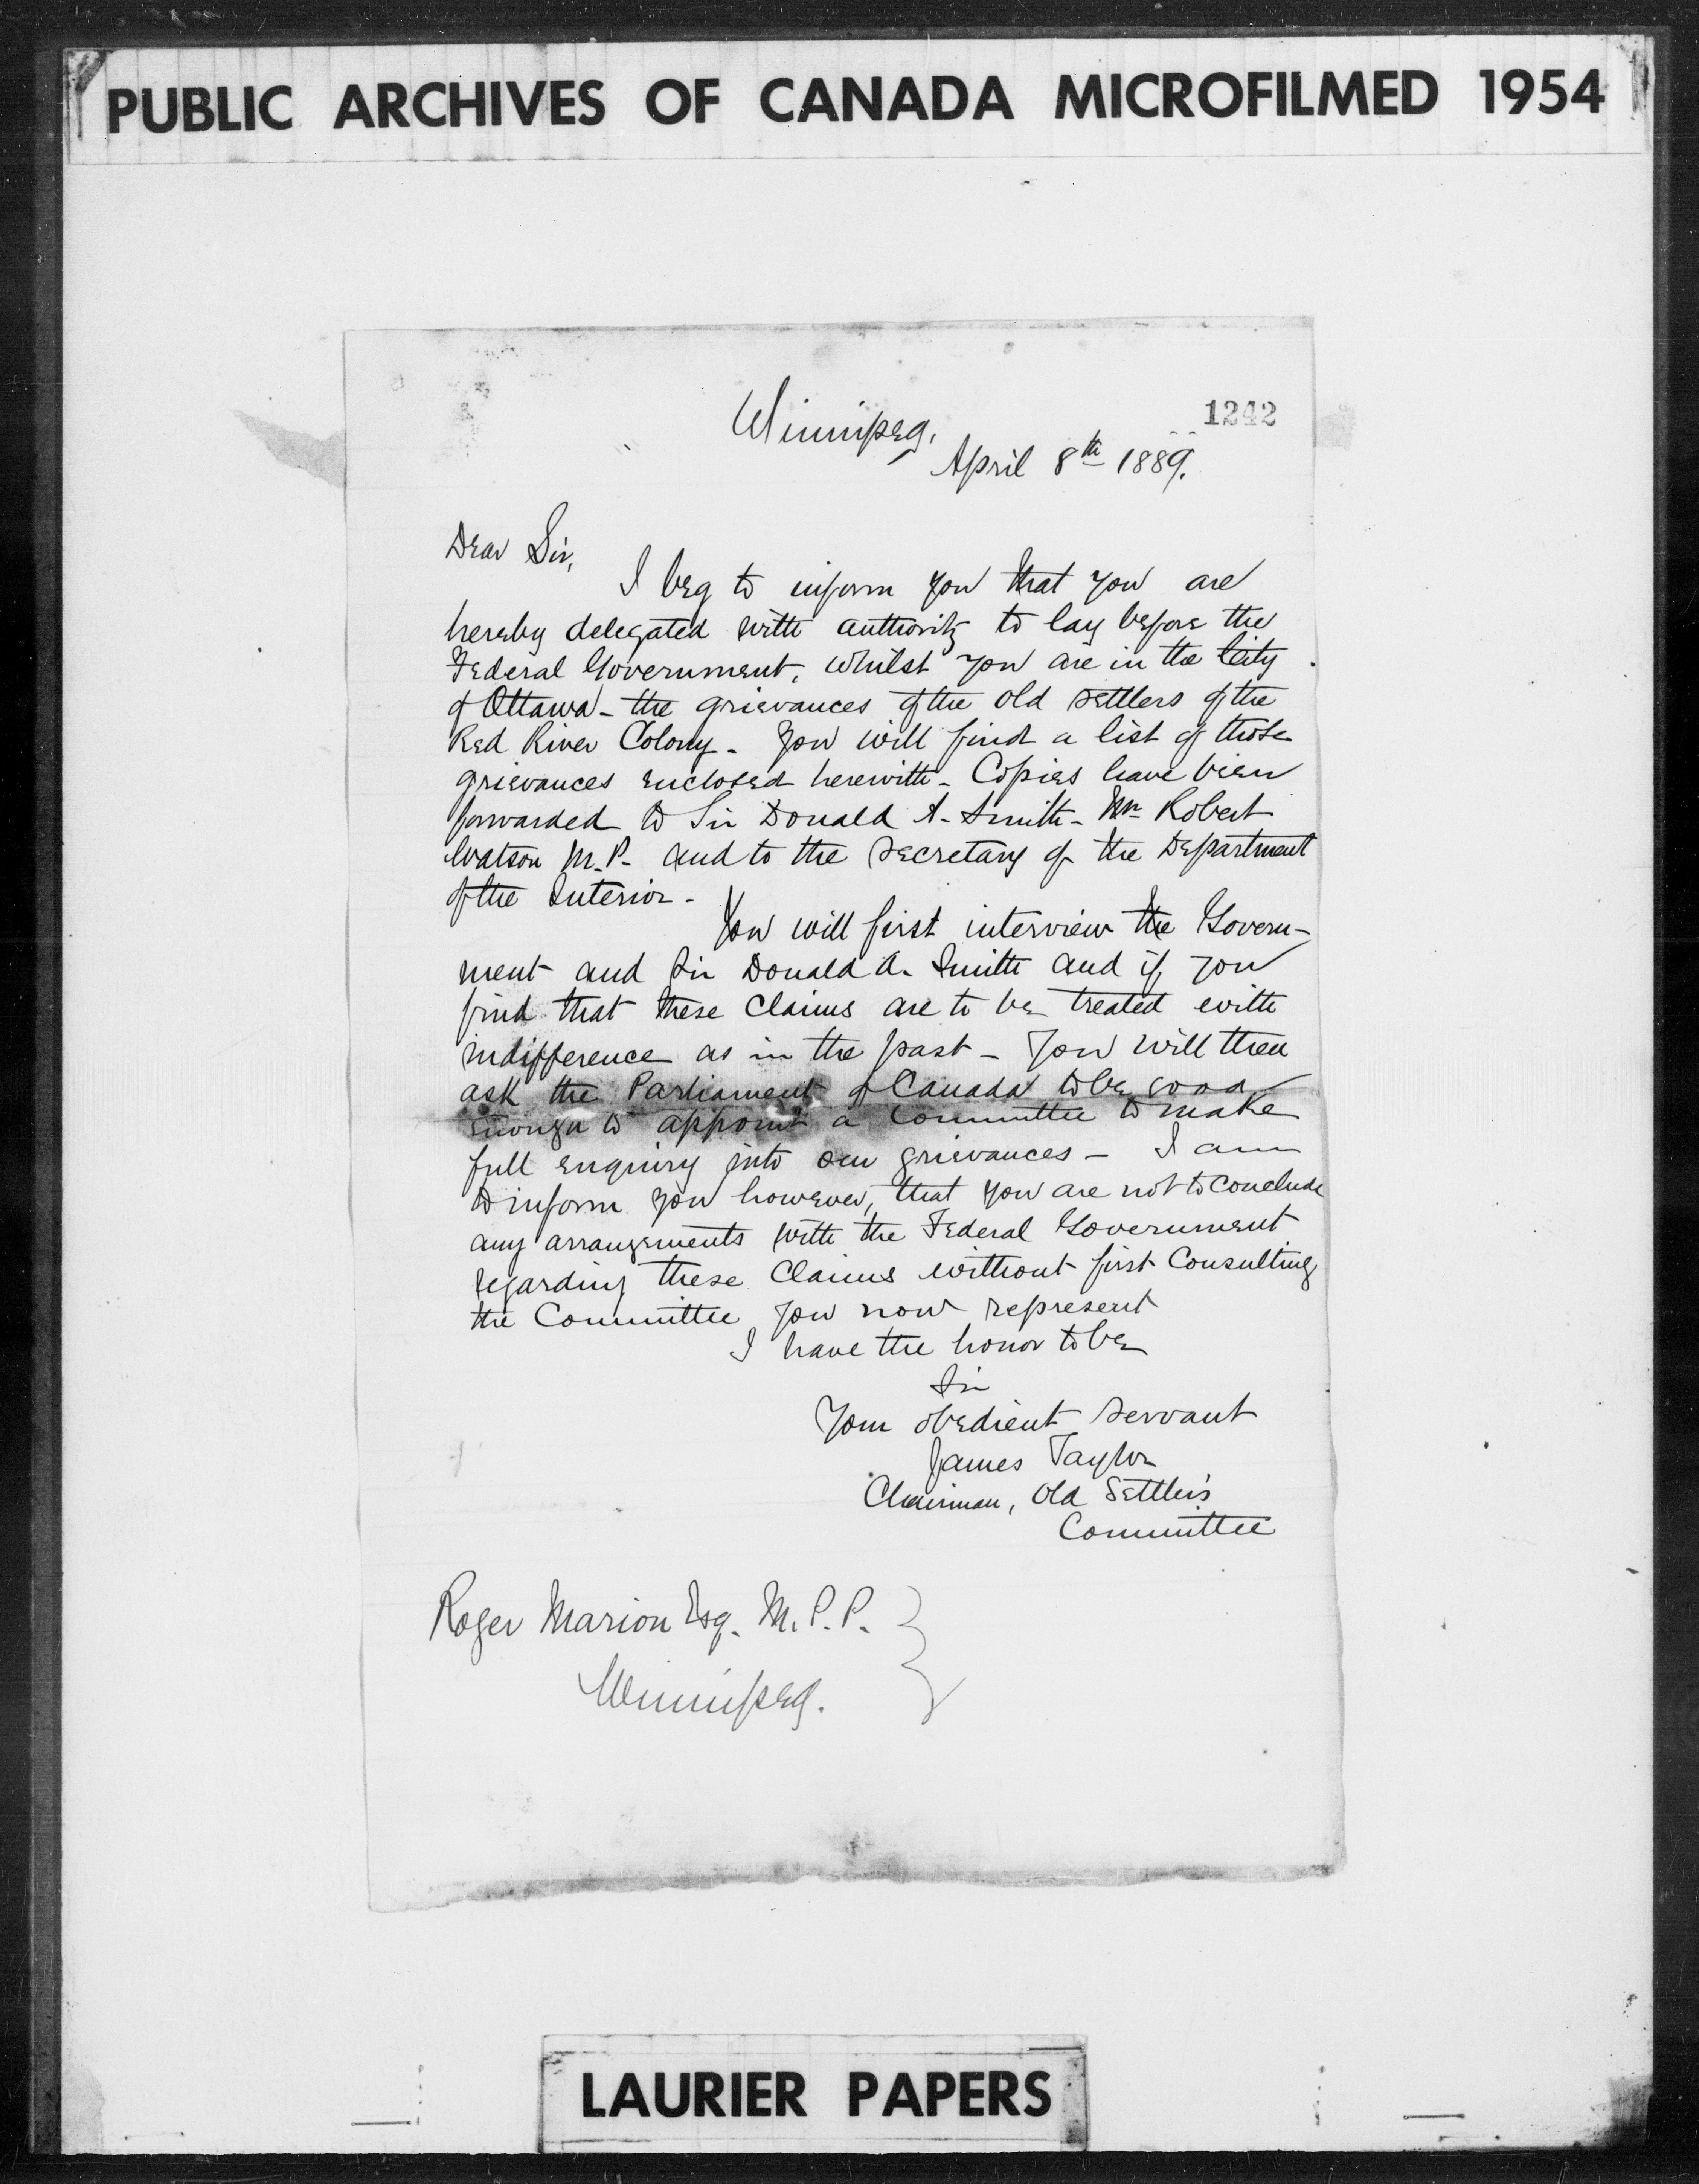 PUBLIC ARCHIVES OF CANADA MICROFILMED 1954
1242
Winnipeg,
April 8th 1889.
Dear Sir,
I beg to inform you that you are
hereby delegated with authority to lay before the
Federal Government, whilst you are in the City
of Ottawa - the grievances of the old settlers of the
Red River Colony - You will find a list of those
grievances enclosed herewith - Copies have been
forwarded to Sir Donald A. Smith - Mr Robert
Watson M.P. and to the Secretary of the Department
of the Interior -
You will first interview the Govern-
ment and Sir Donald A. Smith and if you
find that these claims are to be treated with
indifference as in the past - You will then
ask the Parliament of Canada to be good
enough to appoint a Committee to make
full enquiry into our grievances - I am
to inform you however, that you are not to conclude
any arrangements with the Federal Government
regarding these Claims without first Consulting
the Committee you now represent
I have the honor to be
Sir
Your obedient servant
James Taylor
Chairman, Old Settler's
Committee
Roger Marion Esq. M.P.P.
Winnipeg.
LAURIER PAPERS